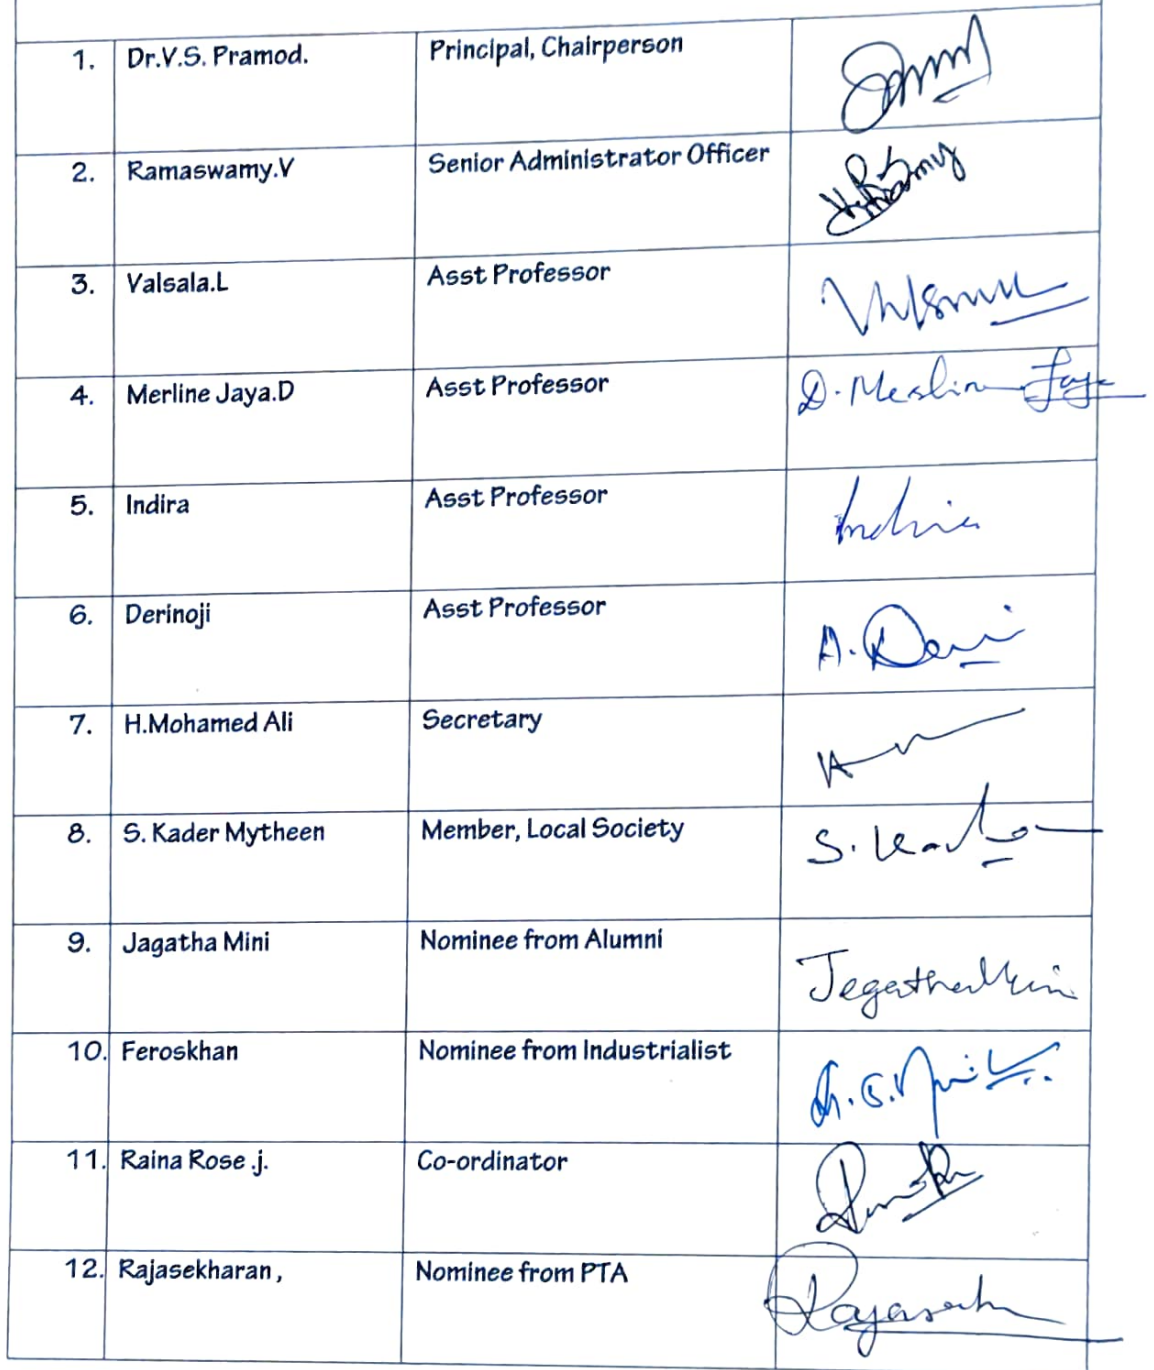 1. Dr.V.S. Pramod. Principal, Chairperson
2. Ramaswamy.V Senior Administrator Officer
3. Valsala.L Asst Professor
4. Merline Jaya.D Asst Professor D. Merlin Jaya
5. Indira Asst Professor Indira
6. Derinoji Asst Professor A.
7. H.Mohamed Ali Secretary
8. S. Kader Mytheen Member, Local Society S.
9. Jagatha Mini Nominee from Alumni Jegatha Mini
10. Feroskhan Nominee from Industrialist
11. Raina Rose .j. Co-ordinator
12. Rajasekharan , Nominee from PTA